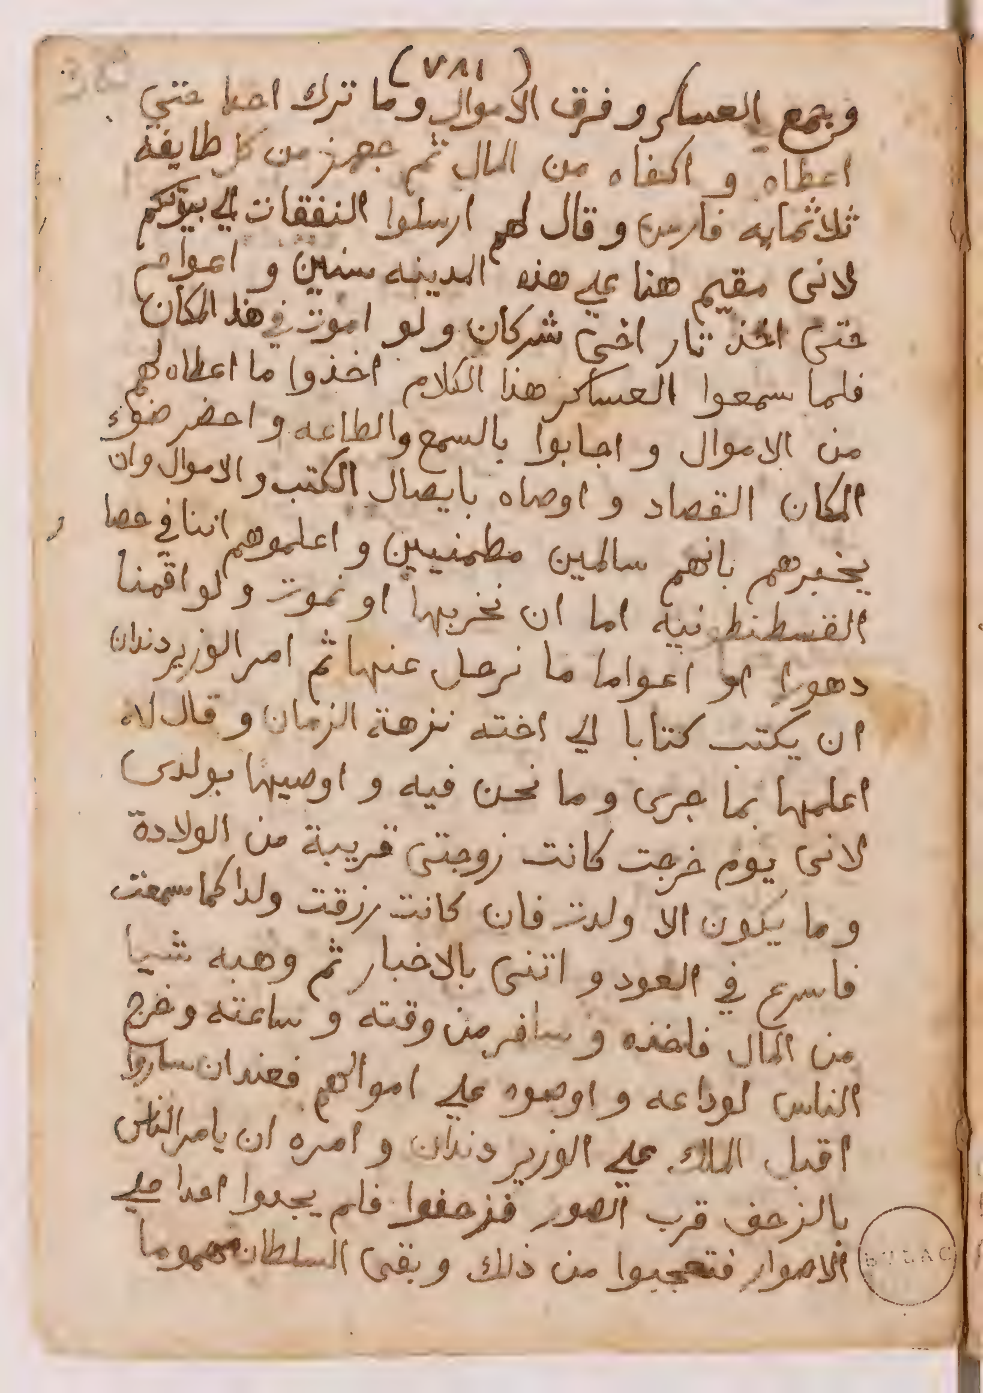 (٧٨١)
وجمع العساكر و فرق الاموال وما ترك احدا حتي
اعطاه و اكفاه من المال ثم جهز من كل طايفة
ثلاثمايه فارس وقال لهم ارسلوا النفقات الي بيوتكم
لانى مقيم هنا علي هذه المدينه سنين و اعوام
حتى اخذ تار اخى شركان ولو اموت في هذا المكان
فلما سمعوا العساكر هذا الكلام اخذوا ما اعطاه لهم
من الاموال و اجابوا بالسمع والطاعه و احضر ضوء
المكان القصاد و اوصاه بايصال الكتب و الاموال وان
يخبرهم بانهم سالمين مطمنيين و اعلموهم اننا في حصا
القسطنطونيه اما ان نخربها او نموت ولو اقمنا
دهورا او اعواما ما نرحل عنها ثم امر الوزير دندان
ان يكتب كتابا الي اخته نزهة الزمان و قال له
اعلمها بما جرى وما نحن فيه و اوصيها بولدى
لانى يوم خرجت كانت زوجتى قريبة من الولادة
وما يكون الا ولدت فان كانت رزقت ولدا كما سمعت
فاسرع في العود و اتنى بالاخبار ثم وهبه شيا
من المال فاخذه و سافر من وقته و ساعته و خرج
الناس لوداعه و اوصوه علي اموالهم فعند ان ساروا
اقبل الملك علي الوزير دندان و امره ان يامر الناس
بالزحف قرب الصور فزحفوا فلم يجدوا احدا علي
الاصوار فتعجبوا من ذلك وبقى السلطان مهموما
BULAC